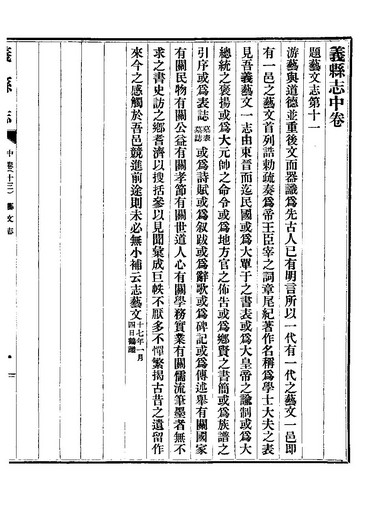 義縣志中卷
題藝文志第十一
游藝與道德並重後文而器識爲先古人已有明言所以一代有一代之藝文一邑即
有一邑之藝文首列誥勅疏奏爲帝王臣宰之詞章尾紀著作名稱爲學士大夫之表
見吾義藝文一志由東晉而迄民國或爲大單于之書表或爲大皇帝之諭制或爲大
總統之褒揚或爲大元帥之命令或爲地方官之佈告或爲鄉賢之書簡或爲族譜之
引序或爲表誌墓表墓誌或爲詩賦或爲叙跋或爲辭歌或爲碑記或爲傳述舉有關國家
有關民物有關公益有關孝節有關世道人心有關學務實業有關儒流筆墨者無不
求之書史訪之鄉耆濟以搜括參以見聞彙成巨帙不厭多不憚繁揭古昔之遺留作
來今之感觸於吾邑競進前途則未必無小補云志藝文十七年一月四日鶴選
義縣志
中卷(十三)藝文志
一